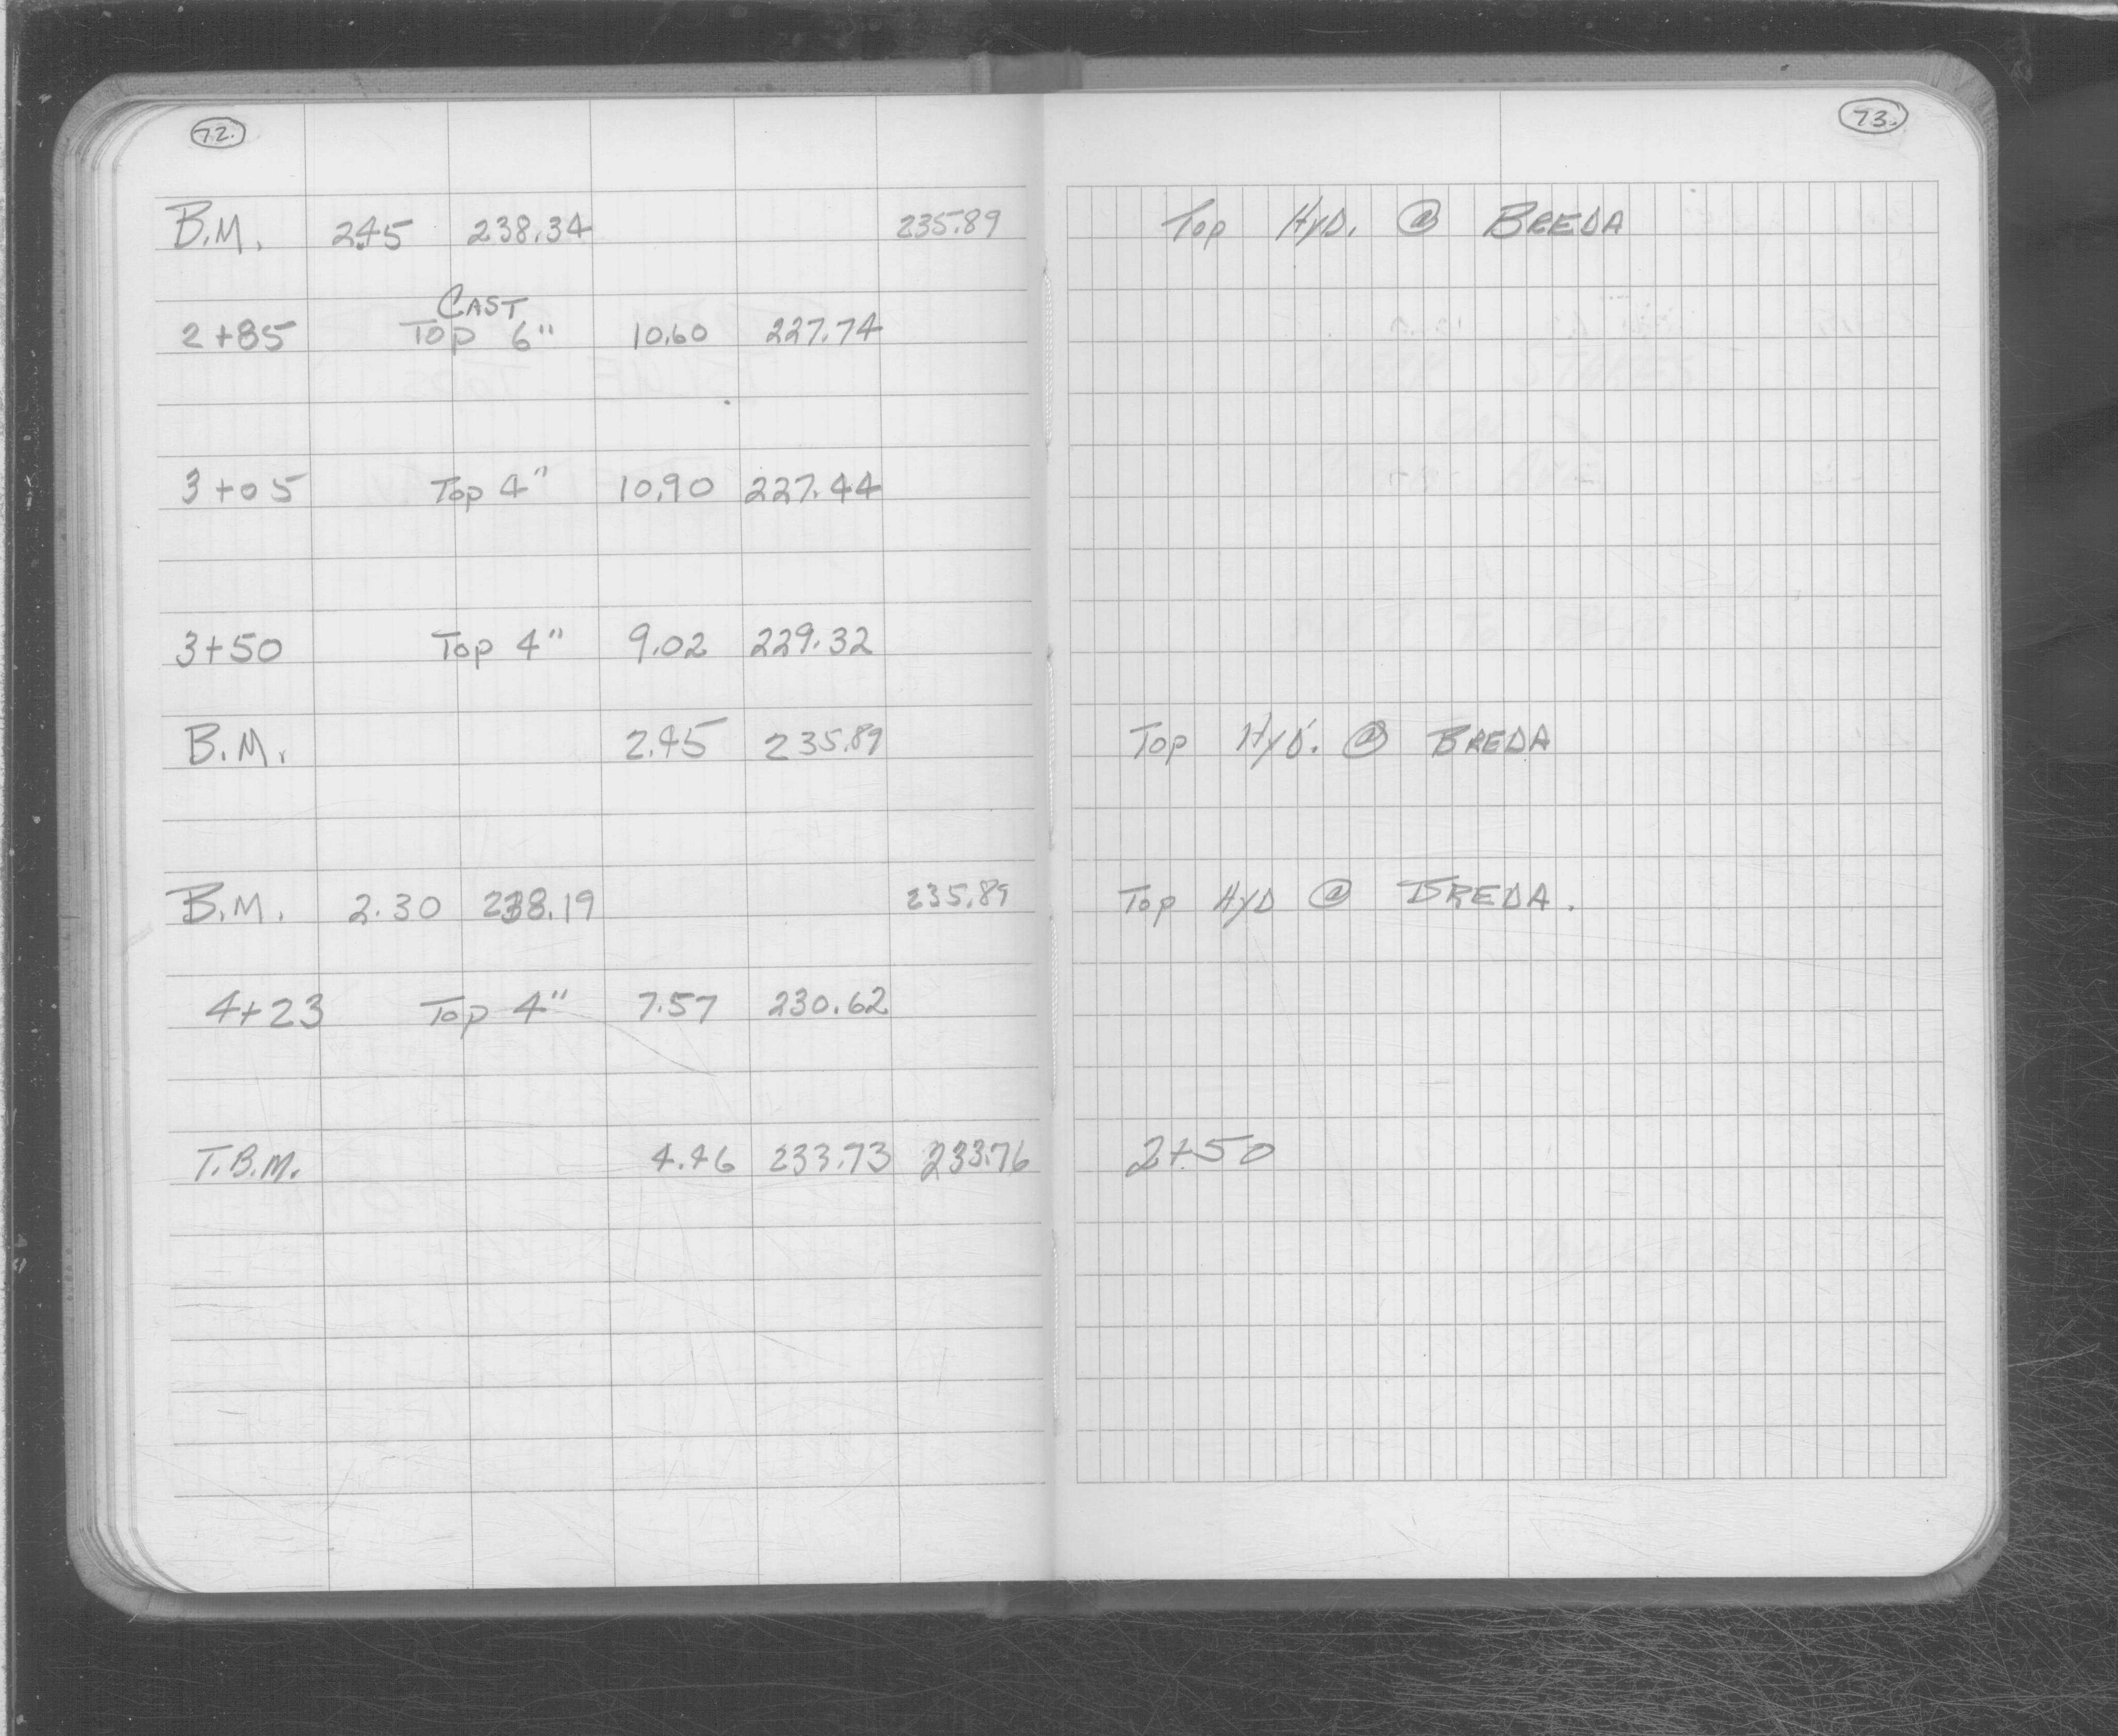 72.
B.M. 2.45 238.34 235.89
CAST
2+85 Top 6" 10.60 227.74
3+05 Top 4" 10.90 227.44
3+50 Top 4" 9.02 229.32
B.M. 2.45 235.89
B.M. 2.30 238.19 235.89
4+23 Top 4" 7.57 230.62
T.B.M. 4.46 233.73 233.76
73.
Top HYD. @ BREDA
Top HYD. @ BREDA
Top HYD @ BREDA.
2+50